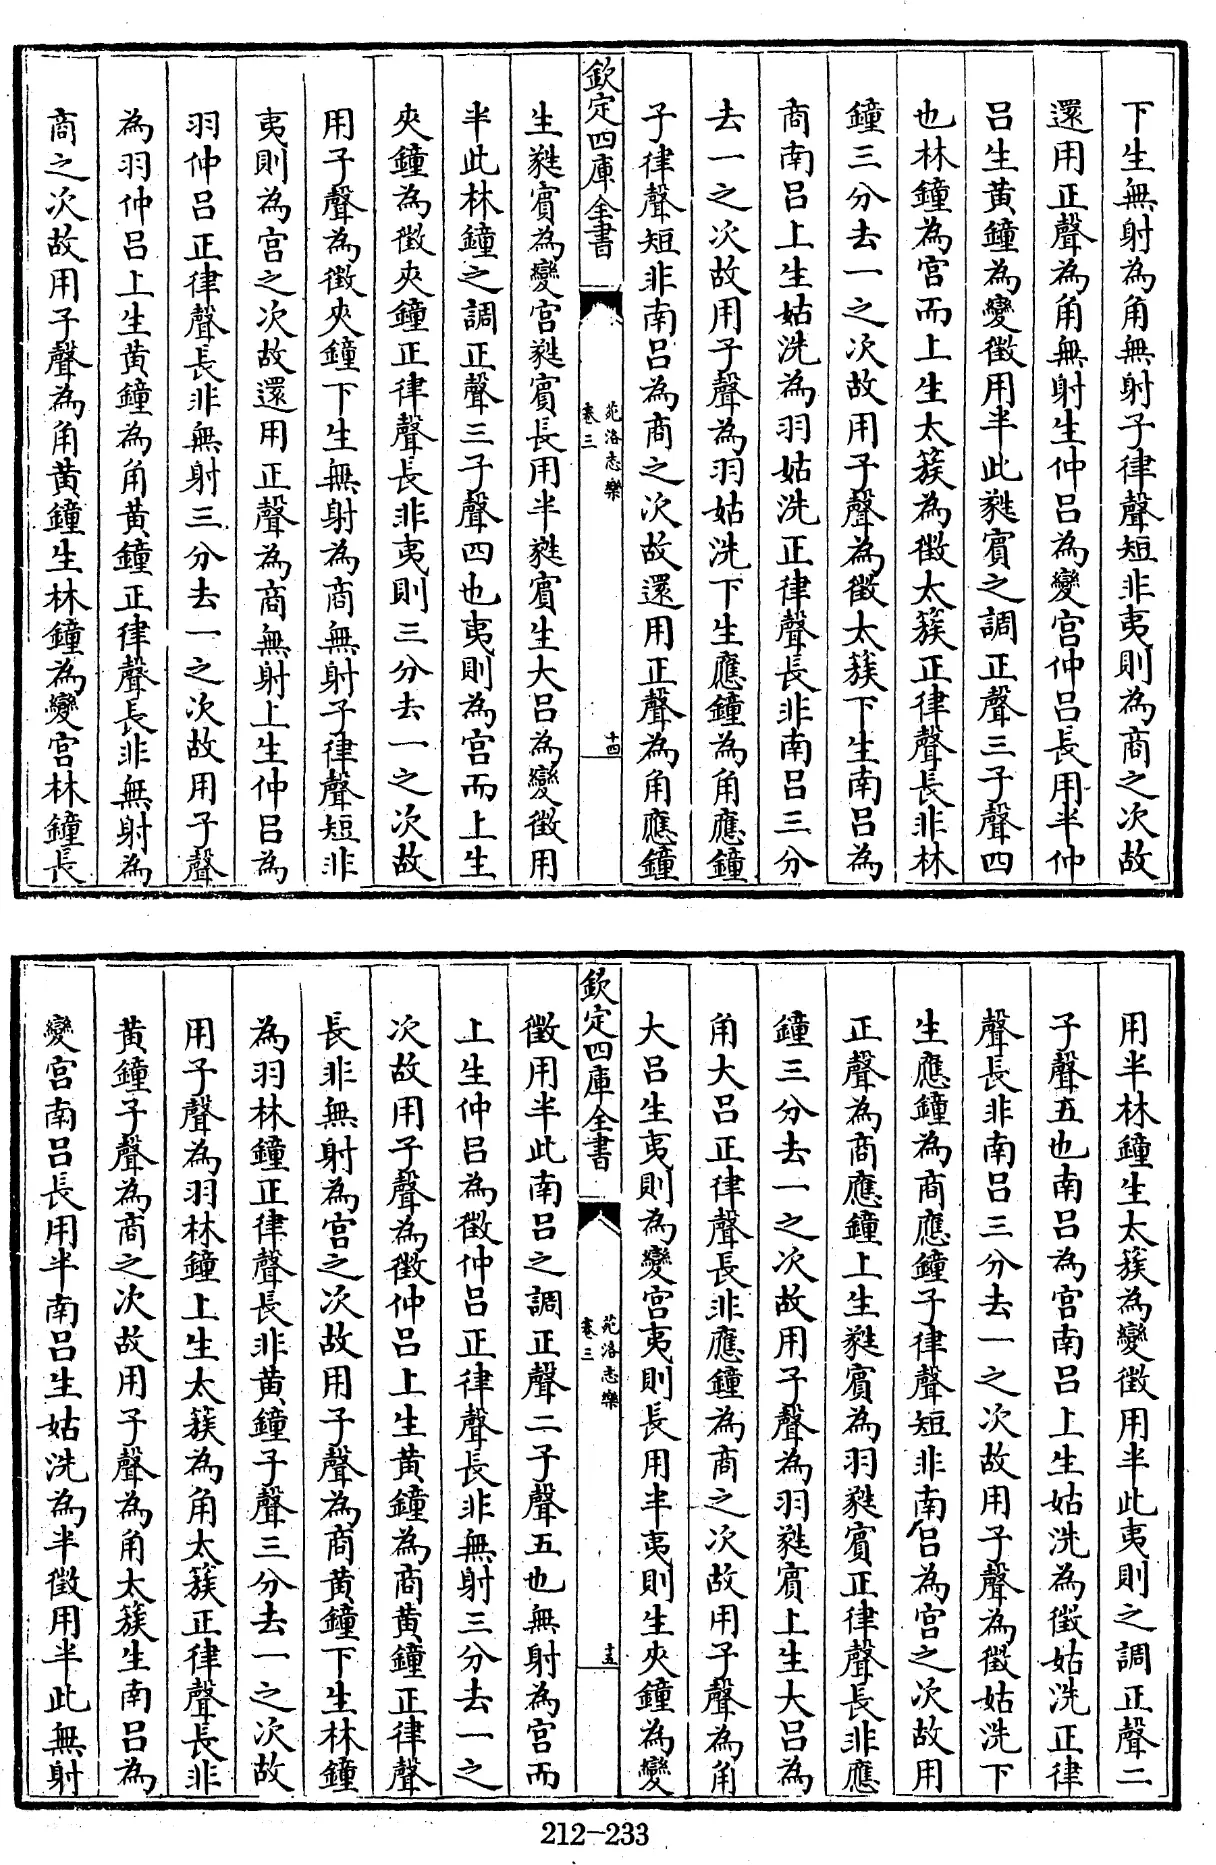 下生無射為角無射子律聲短非夷則為商之次故
還用正聲為角無射生仲呂為變宮仲呂長用半仲
呂生黃鐘為變徵用半此蕤賓之調正聲三子聲四
也林鐘為宮而上生太蔟為徵太蔟正律聲長非林
鐘三分去一之次故用子聲為徵太蔟下生南呂為
商南呂上生姑洗為羽姑洗正律聲長非南呂三分
去一之次故用子聲為羽姑洗下生應鐘為角應鐘
子律聲短非南呂為商之次故還用正聲為角應鐘
欽定四庫全書
苑洛志樂
卷三
十四
生蕤賓為變宮蕤賓長用半蕤賓生大呂為變徵用
半此林鐘之調正聲三子聲四也夷則為宮而上生
夾鐘為徵夾鐘正律聲長非夷則三分去一之次故
用子聲為徵夾鐘下生無射為商無射子律聲短非
夷則為宮之次故還用正聲為商無射上生仲呂為
羽仲呂正律聲長非無射三分去一之次故用子聲
為羽仲呂上生黃鐘為角黃鐘正律聲長非無射為
商之次故用子聲為角黃鐘生林鐘為變宮林鐘長
用半林鐘生太蔟為變徵用半此夷則之調正聲二
子聲五也南呂為宮南呂上生姑洗為徵姑洗正律
聲長非南呂三分去一之次故用子聲為徵姑洗下
生應鐘為商應鐘子律聲短非南呂為宮之次故用
正聲為商應鐘上生蕤賓為羽蕤賓正律聲長非應
鐘三分去一之次故用子聲為羽蕤賓上生大呂為
角大呂正律聲長非應鐘為商之次故用子聲為角
大呂生夷則為變宮夷則長用半夷則生夾鐘為變
欽定四庫全書
苑洛志樂
卷三
十五
徵用半此南呂之調正聲二子聲五也無射為宮而
上生仲呂為徵仲呂正律聲長非無射三分去一之
次故用子聲為徵仲呂上生黃鐘為商黃鐘正律聲
長非無射為宮之次故用子聲為商黃鐘下生林鐘
為羽林鐘正律聲長非黃鐘子聲三分去一之次故
用子聲為羽林鐘上生太蔟為角太蔟正律聲長非
黃鐘子聲為商之次故用子聲為角太蔟生南呂為
變宮南呂長用半南呂生姑洗為半徵用半此無射
212-233